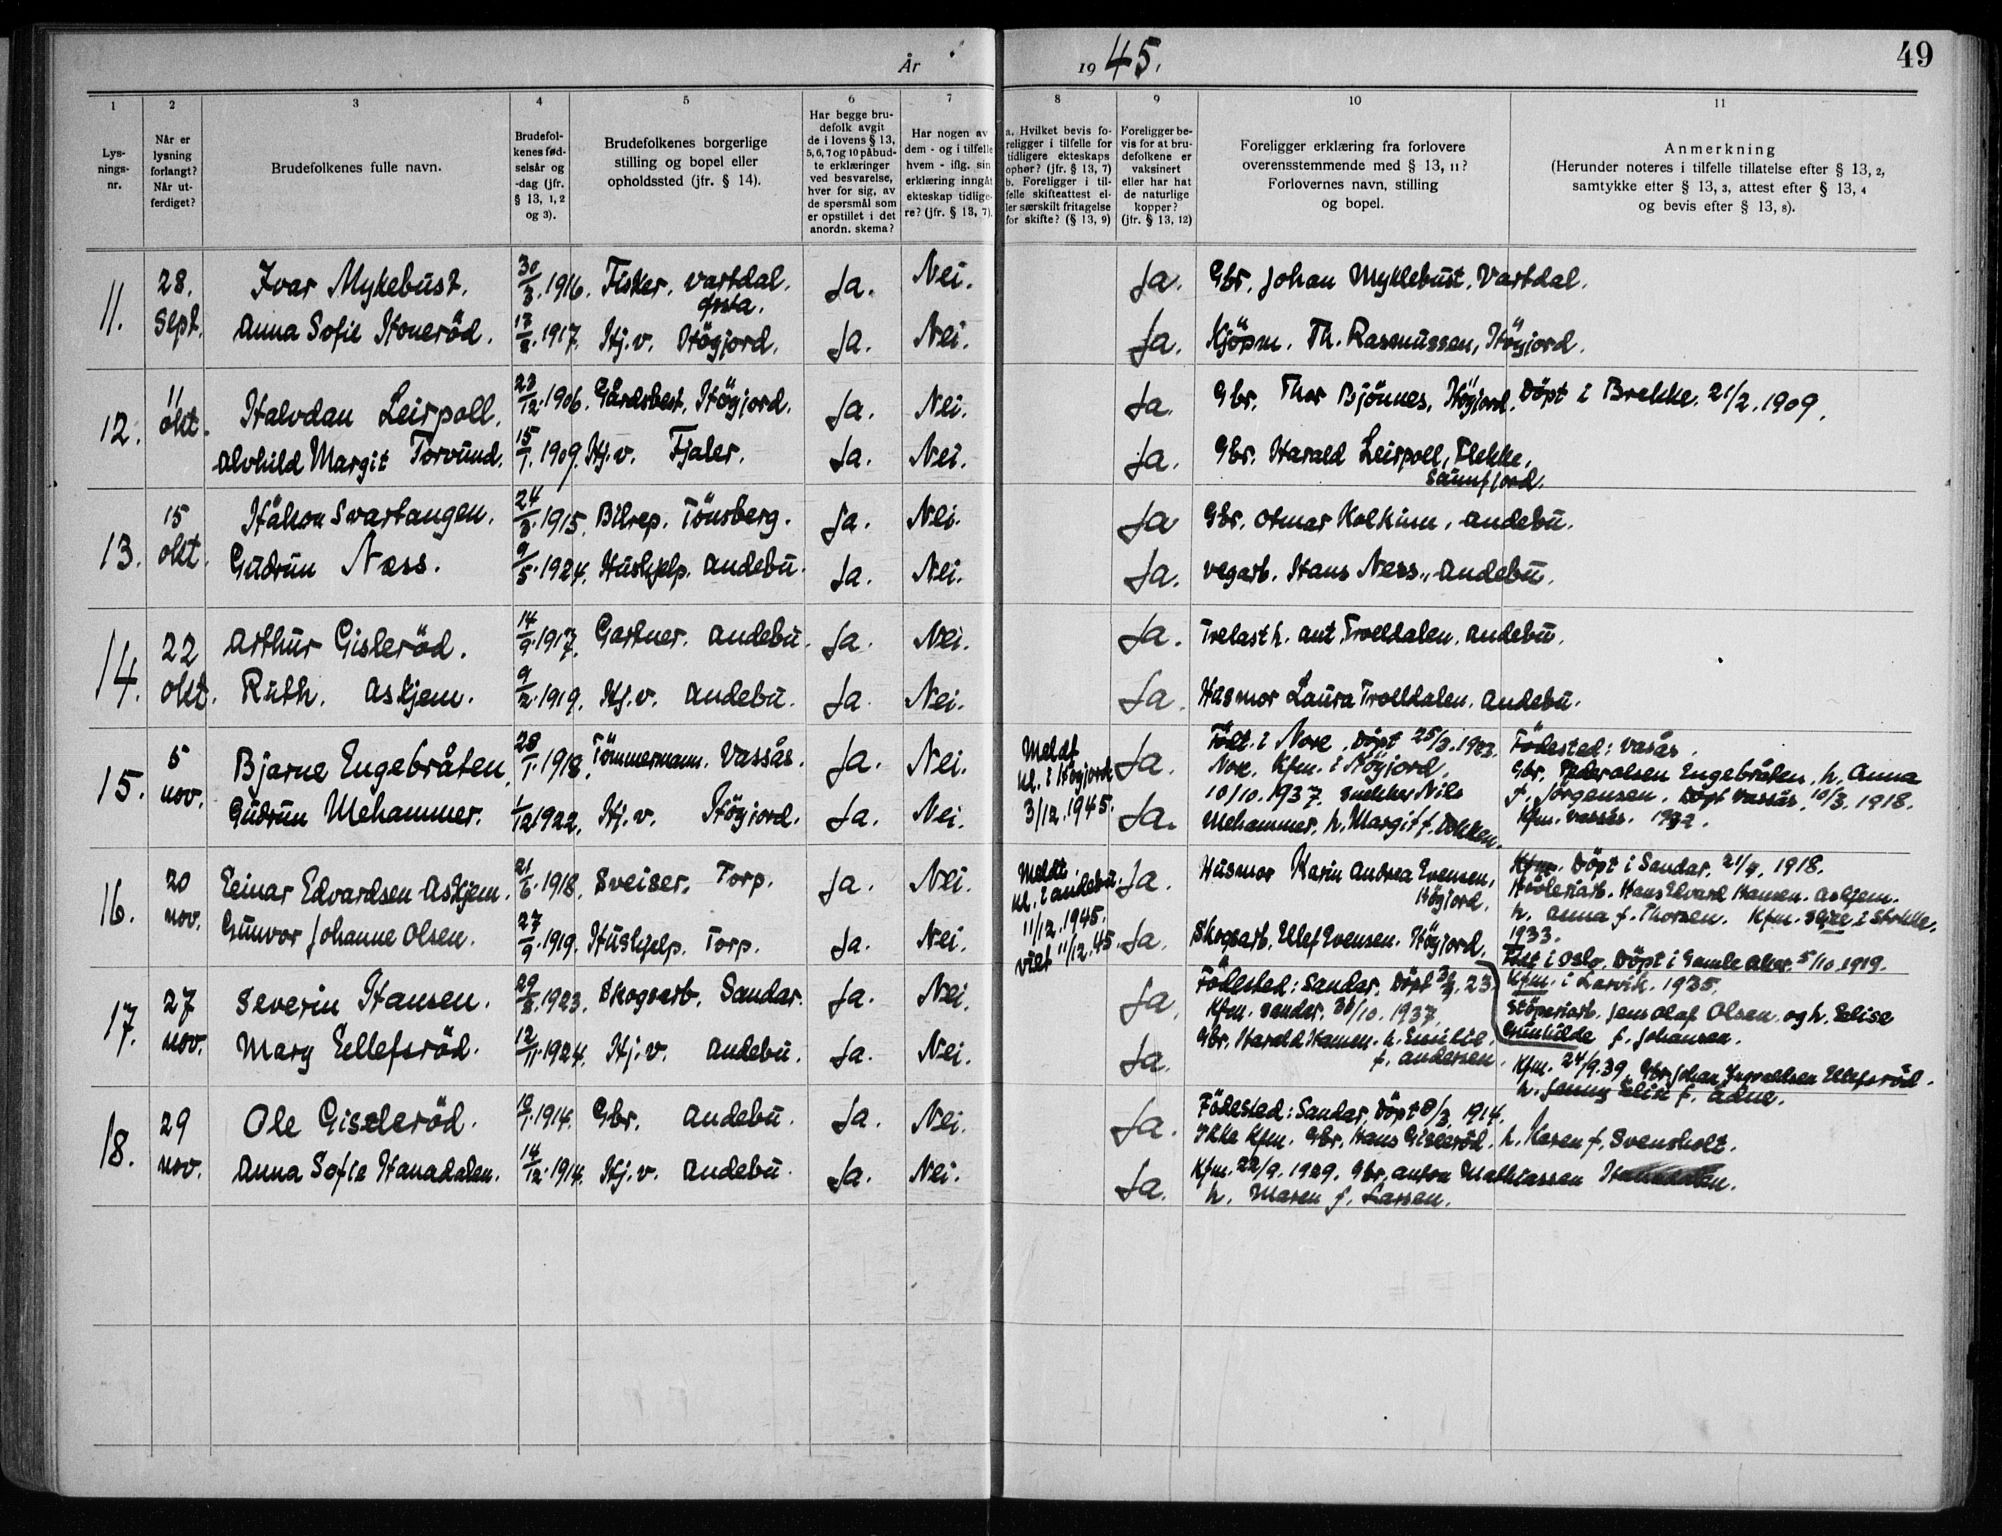 År 1945.
49
1 2 3 4 5 6 7 8 9 10 11
Lysningsnr.
Når er lysning forlangt? Når utferdiget?
Brudefolkenes fulle navn.
Brudefolkenes fødselsår og -dag (jfr. § 13, 1, 2 og 3).
Brudefolkenes borgerlige stilling og bopel eller opholdssted (jfr. § 14).
Har begge brudefolk avgit de i lovens § 13, 5, 6, 7 og 10 påbudte erklæringer ved besvarelse, hver for sig, av de spørsmål som er opstillet i det anordn. skema?
Har nogen av dem - og i tilfelle hvem - iflg. sin erklæring inngåt ekteskap tidligere? (jfr. § 13, 7).
a. Hvilket bevis foreligger i tilfelle for tidligere ekteskaps ophør? (jfr. § 13, 7) b. Foreligger i tilfelle skifteattest eller særskilt fritagelse for skifte? (§ 13, 9)
Foreligger bevis for at brudefolkene er vaksinert eller har hat de naturlige kopper? (jfr. § 13, 12)
Foreligger erklæring fra forlovere overensstemmende med § 13, 11? Forlovernes navn, stilling og bopel.
Anmerkning (Herunder noteres i tilfelle tillatelse efter § 13, 2, samtykke efter § 13, 3, attest efter § 13, 4 og bevis efter § 13, 8).
11. 28. Sept. Ivar Myklebust. 30/3. 1916. Fisker. Vartdal. Ørsta. Ja. Nei. Ja. Gbr. Johan Myklebust. Vartdal.
Anna Sofie Honeröd. 1917. Hj.v. Högjord. Ja. Nei. Ja. Kjöpm. Th. Rasmussen, Högjord.
12. 11 okt. Halvdan Leirpoll. 23/12. 1906. Gårdsbest. Högjord. Ja. Nei. Ja. Gbr. Thor Bjönnes, Högjord. Döpt i Brekke. 21/2. 1909.
Alvhild Margit Torvund. 15/1. 1909. Hj.v. Fjaler. Ja. Nei. Ja. Gbr. Harald Leirpoll, Flekke, Sunnfjord.
13. 15 okt. Håkon Svartangen. 24/8. 1915. Bilrep. Tönsberg. Ja. Nei. Ja Gbr. Otmar Kolkinn, Andebu.
Gudrun Næss. 9/5. 1924. Hushjelp. Andebu. Ja. Nei. Ja. Vegarb. Hans Ness, Andebu.
14. 22 okt. Arthur Gisleröd. 14/9. 1917. Gartner. Andebu. Ja. Nei. Ja. Trelasth. Ant. Trolldalen. Andebu.
Ruth. Askjem. 9/2. 1919. Hj.v. Andebu. Ja. Nei. Ja. Husmor Laura Trolldalen. Andebu.
15. 5 nov. Bjarne Engebråten. 28/1. 1918. Tömmermann. Vassås. Ja. Nei. Meldt kl. i Högjord 3/12. 1945. Ja. Födt i Nore. Döpt 25/3. 1923. Nore. Kfm. i Högjord. 10/10. 1937. Snekker Nils Mehammer. h. Margit f. Dokken.
Födested: Vasås. Gbr. Peder Olsen Engebråten. h. Anna f. Jörgensen. Döpt Vassås. 10/3. 1918. Kfm. Vassås. 1932.
Gudrun Mehammer. 1/12 1922. Hj.v. Högjord. Ja. Nei. Ja.
16. 20 nov. Einar Edvardsen Askjem. 21/6. 1918. Sveiser. Torp. Ja. Nei. Meldt kl. i Andebu. 11/12. 1945. viet 11/12. 45. Ja. Husmor Karin Andrea Evensen, Högjord.
Kfm. Döpt i Sandar. 21/7. 1918. Hövleriarb. Hans Edvard Hansen. Askjem. h. Anna f. Thorsen. Kfm. Skjee i Stokke. 1933.
Gunvor Johanne Olsen. 27/9. 1919. Hushjelp. Torp. Ja. Nei. Ja. Skogsarb. Ellef Evensen. Högjord.
Födt i Oslo. Döpt i Gamle Aker. 5/10. 1919. Kfm. i Larvik. 1935. Stöperiarb. Jens Olaf Olsen. og h. Elise Gunhilde f. Johansen.
17. 27 nov. Severin Hansen. 29/8. 1923. Skogsarb. Sandar. Ja. Nei. Ja. Födested: Sandar. Döpt 23. Kfm. Sandar. 30/10. 1937. Gbr. Harald Hansen. h. Emilie. f. Andersen.
Mary Ellefsröd. 12/11. 1924. Hj.v. Andebu. Ja. Nei. Ja. Kfm. 24/9. 39. Gbr. Johan Ingvaldsen Ellefsröd. h. Jenny Elise f. Adne.
18. 29 nov. Ole Gisleröd. 1914. Gbr. Andebu. Ja. Nei. Ja. Födested: Sandar. Döpt 8/3. 1914. Ikke Kfm. Gbr. Hans Gisleröd. h. Karen f. Svensholt.
Anna Sofie Hanadalen. 14/12. 1914. Hj.v. Andebu. Ja. Nei. Ja. Kfm. 22/9. 1929. Gbr. Anton Mathiassen Hanadalen. h. Maren f. Larsen.